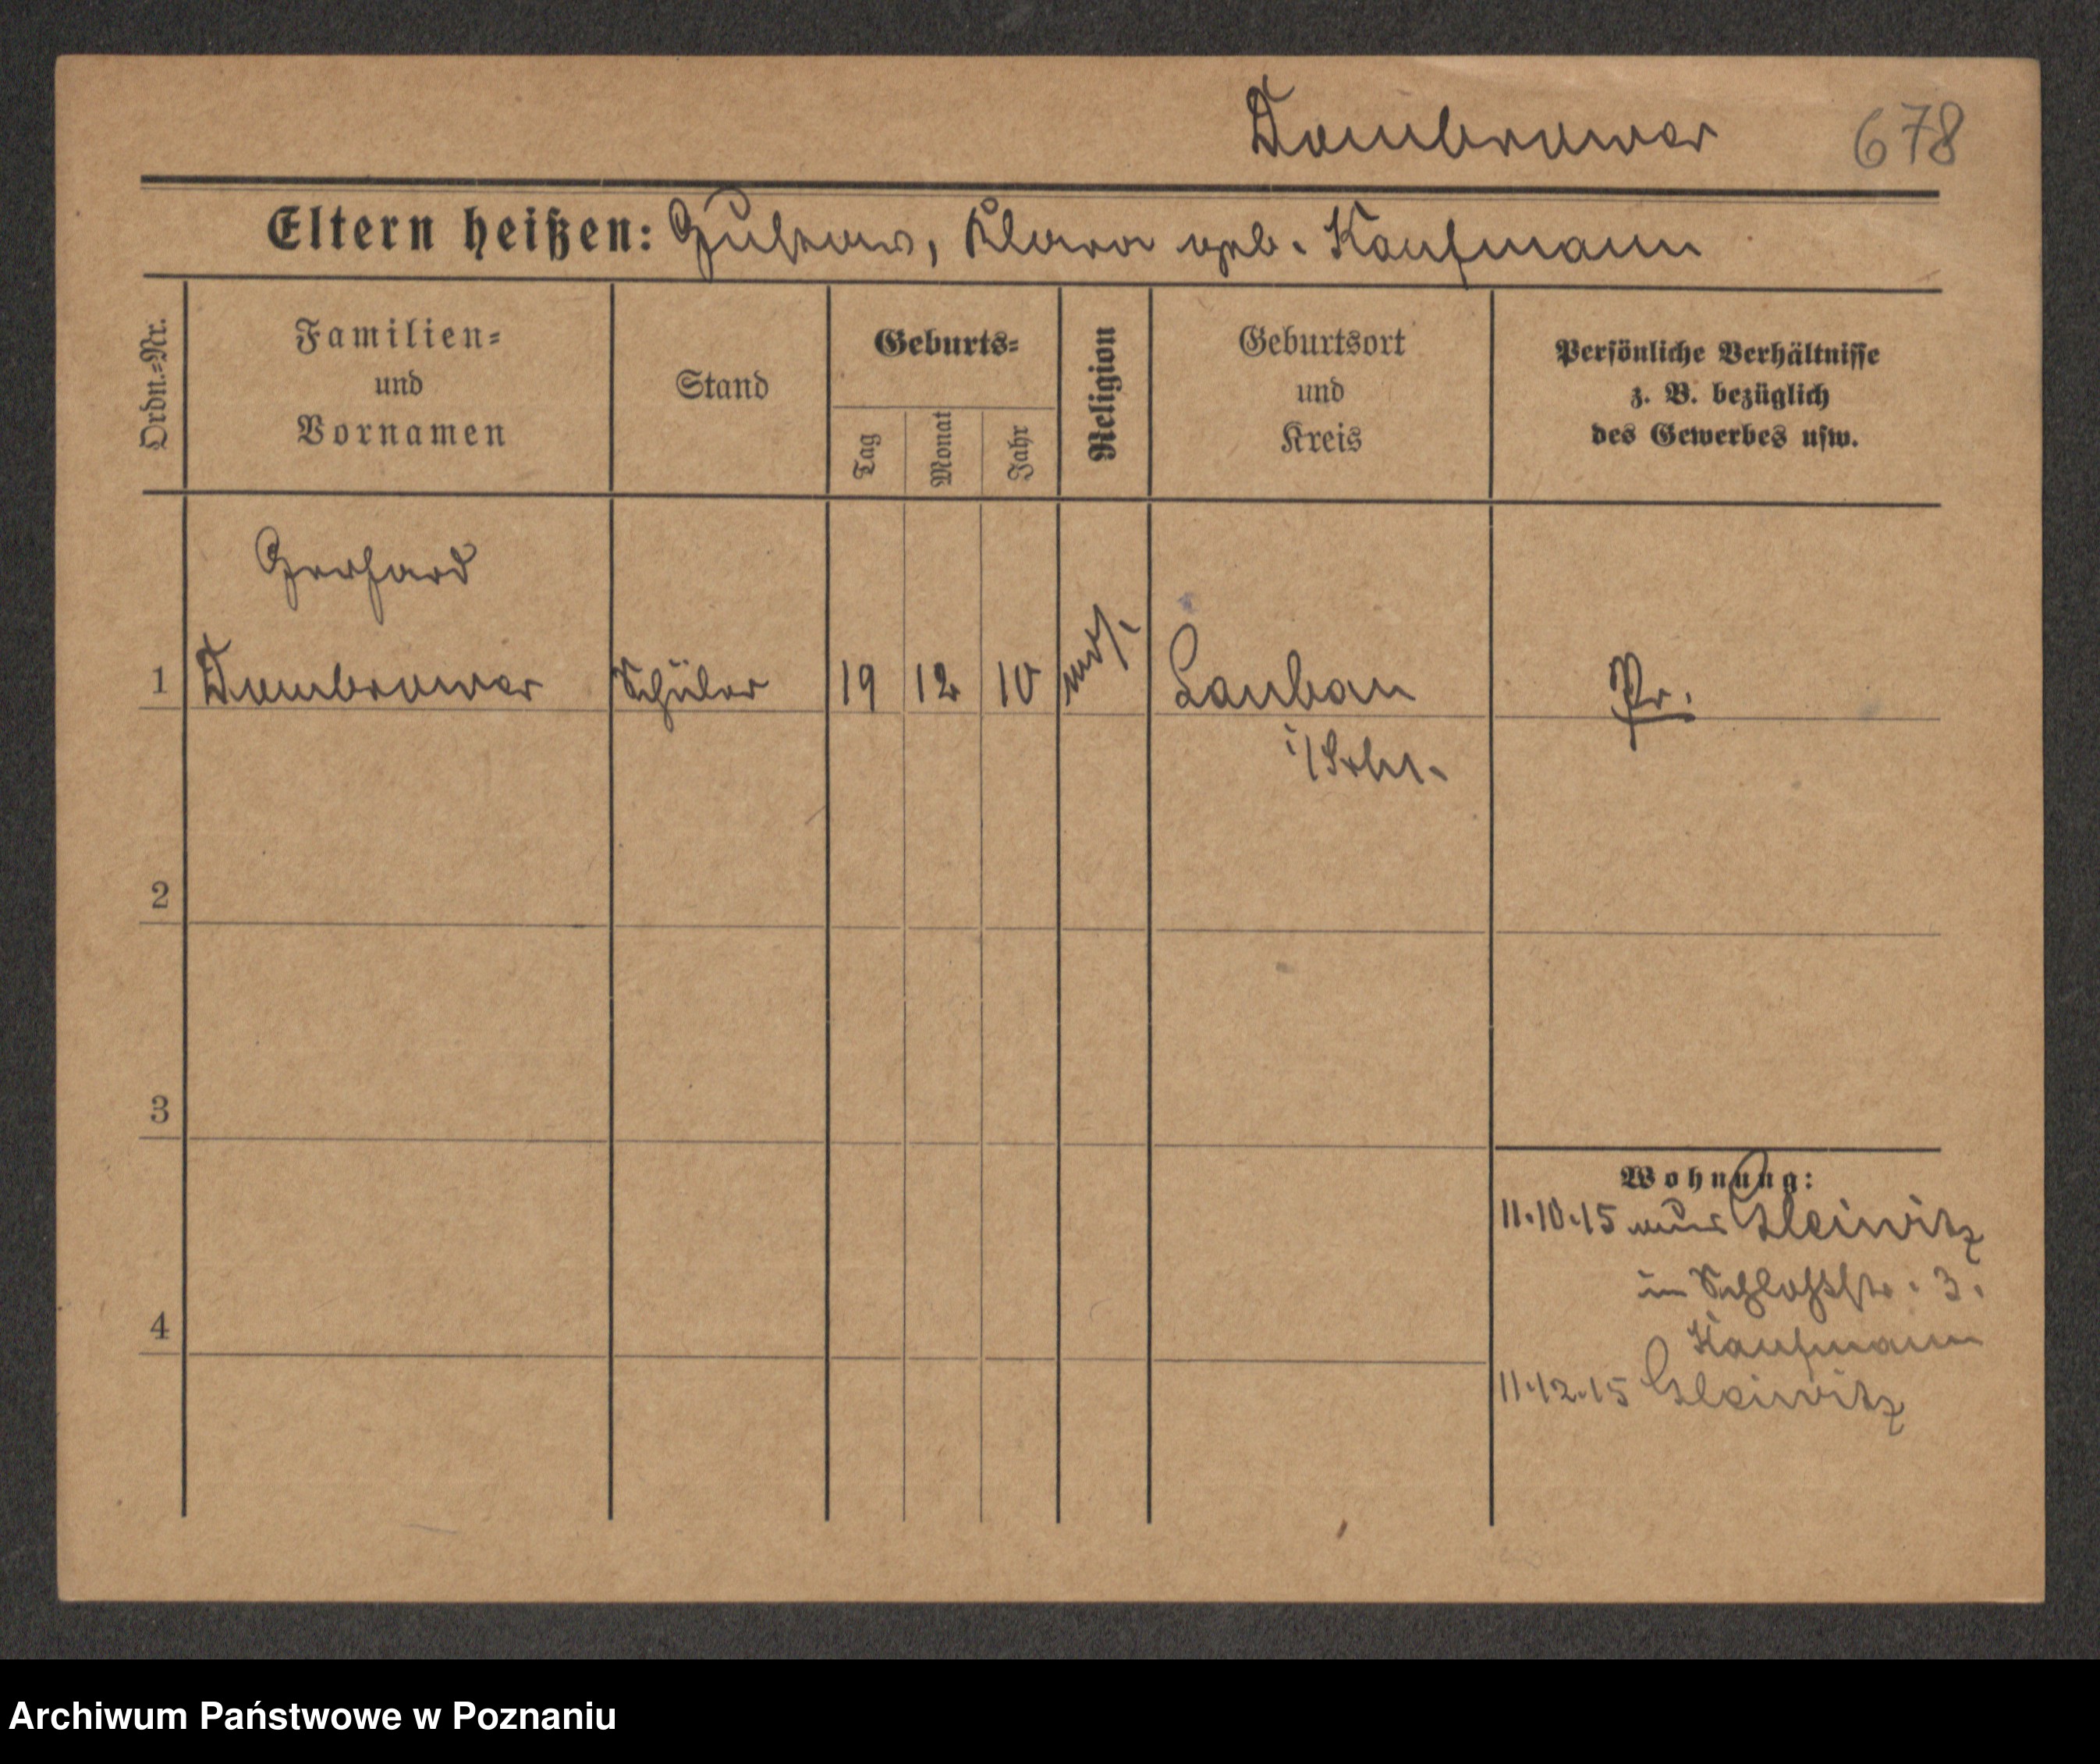 Dombrower 678
Eltern heißen: Gustav, Klara geb. Kaufmann
Ordn.-Nr.
Familien-
und
Vornamen
Stand
Geburts-
Tag
Monat
Jahr
Religion
Geburtsort
und
Kreis
Persönliche Verhältnisse
z. B. bezüglich
des Gewerbes usw.
Gerhard
1 Dombrower Schüler 19 12 10 mos. Lauban Pr.
i/Schl.
2
3
4
Wohnung:
11.10.15 aus Gleiwitz
in Schloßstr. 3.
Kaufmann
11.12.15 Gleiwitz
Archiwum Państwowe w Poznaniu